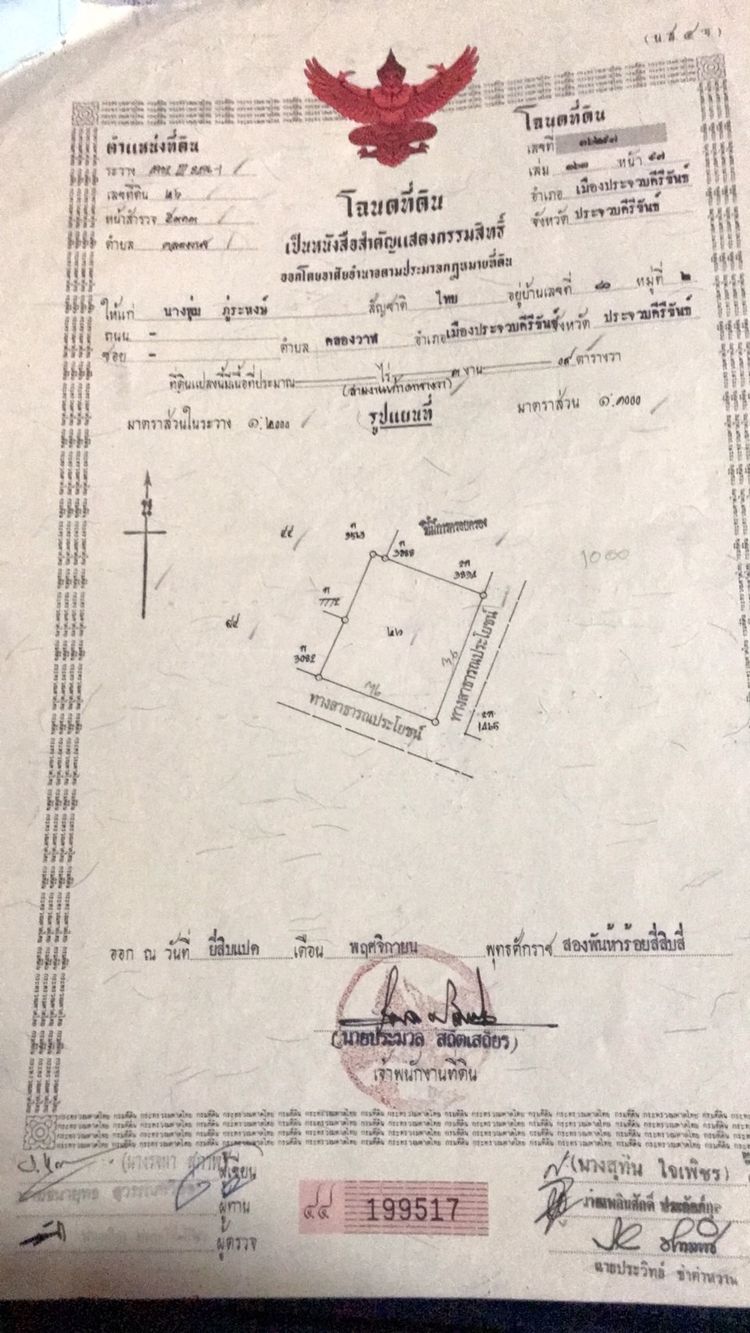 (น.ส. ๔ จ)
ตำแหน่งที่ดิน
ระวาง
เลขที่ดิน ๒๖
หน้าสำรวจ
ตำบล คลองวาฬ
โฉนดที่ดิน
เลขที่
เล่ม หน้า ๔๗
อำเภอ เมืองประจวบคีรีขันธ์
จังหวัด ประจวบคีรีขันธ์
โฉนดที่ดิน
เป็นหนังสือสำคัญแสดงกรรมสิทธิ์
ออกโดยอาศัยอำนาจตามประมวลกฎหมายที่ดิน
ให้แก่ นางชุ่ม ภู่ระหงษ์ สัญชาติ ไทย อยู่บ้านเลขที่ ๘๐ หมู่ที่ ๒
ถนน -
ซอย - ตำบล คลองวาฬ อำเภอ เมืองประจวบคีรีขันธ์ จังหวัด ประจวบคีรีขันธ์
ที่ดินแปลงนี้มีเนื้อที่ประมาณ ไร่ ๓ งาน ๐๙ ตารางวา
(สามงานเก้าตารางวา)
มาตราส่วนในระวาง ๑:๒๐๐๐ รูปแผนที่ มาตราส่วน ๑:๑๐๐๐
น
๕๕
ที่มีการครอบครอง
1000
๒๖
36
ทางสาธารณประโยชน์
ทางสาธารณประโยชน์
ออก ณ วันที่ ยี่สิบแปด เดือน พฤศจิกายน พุทธศักราช สองพันห้าร้อยสี่สิบสี่
(นายประมวล สถิตเสถียร)
เจ้าพนักงานที่ดิน
ผู้เขียน
ผู้ทาน
ผู้ตรวจ
๔๔ 199517
(นางสุทิน ใจเพียร)
นายประวิทย์ ขำคำหวาน